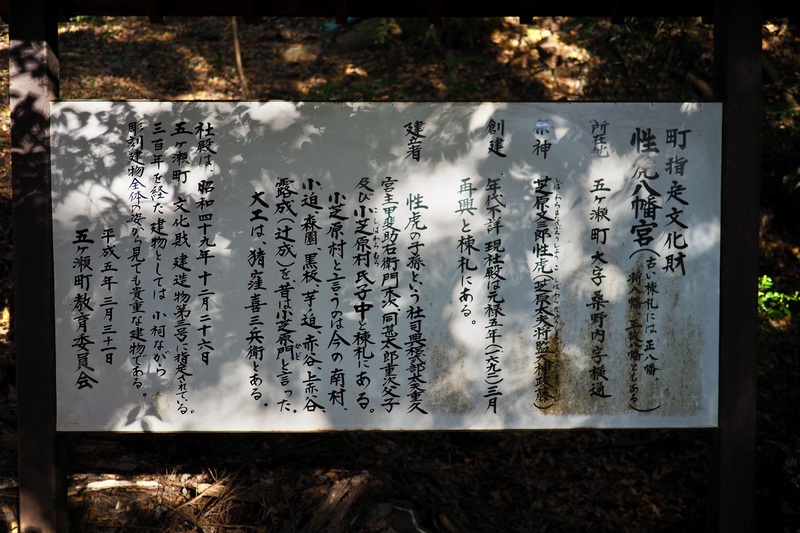 町指定文化財
性虎八幡宮(古い棟札には正八幡、
将八幡、正八幡ともある)
所在地 五ヶ瀬町大字桑野内字横通
祭神 芝原又三郎性虎
創建 年代不詳 現社殿は元禄五年(一六九二)三月
再興と棟札にある。
建立者 性虎の子孫という社司興梠式部太夫重久
宮主甲斐助右衛門太夫、同甚太郎重次父子
及び小芝原村氏子中と棟札にある。
小芝原村と言うのは今の南村、
小迫、森園、黒板、芋ノ迫、赤谷、上赤谷、
露成、辻成、を昔は小芝原門と言った。
大工は、猪窪喜三兵衛とある。
社殿は、昭和四十九年十二月二十六日
五ヶ瀬町文化財建造物第三号に指定されている。
三百年を経た建物としては小祠ながら
彫刻建物全体の姿から見ても貴重な建物である。
平成五年三月三十一日
五ヶ瀬町教育委員会